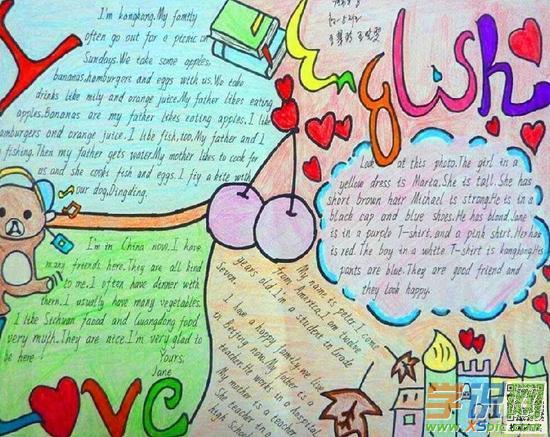 I'm kangkong.My family
often go out for a picnic on
Sundays.We take some apples,
bananas,hamburgers and eggs with us.We take
drinks like mily and orange juice.My father likes eating
apples.Bananas are my father likes eating apples.I like
hamburgers and orange juice.I like fish,too.My father and I
fishing.Then my father gets water.My mother likes to cook for
us and she cooks fish and eggs.I fly a kite with
our dog,Dingding.
English
Look at this photo.The girl in a
yellow dress is Maria.She is tall.She has
short brown hair Michael is strong.He is in a
black cap and blue shoes.He has blond.Jane
is in a purple T-shirt.and a pink shirt.Her hair
is red.The boy in a white T-shirt is kangkong.His
pants are blue.They are good friend and
they look happy.
I'm in China now.I have
many friends here.They are all kind
to me.I often have dinner with
them.I usually have many vegetables.
I like Sichuan faood and Guangdong food
very myth.They are nice.I'm very glad to
be here!
Yours,
Jane
My name is peter.I come
from America.I am twelve
years old.I'm a student in Grade
Seven.
I have a happy family.we live
in Beijing now.My father is a
teacher.He works in a hospital
My mater is a teacher
She teacher in
high School
Love
学识网
www.xspic.com